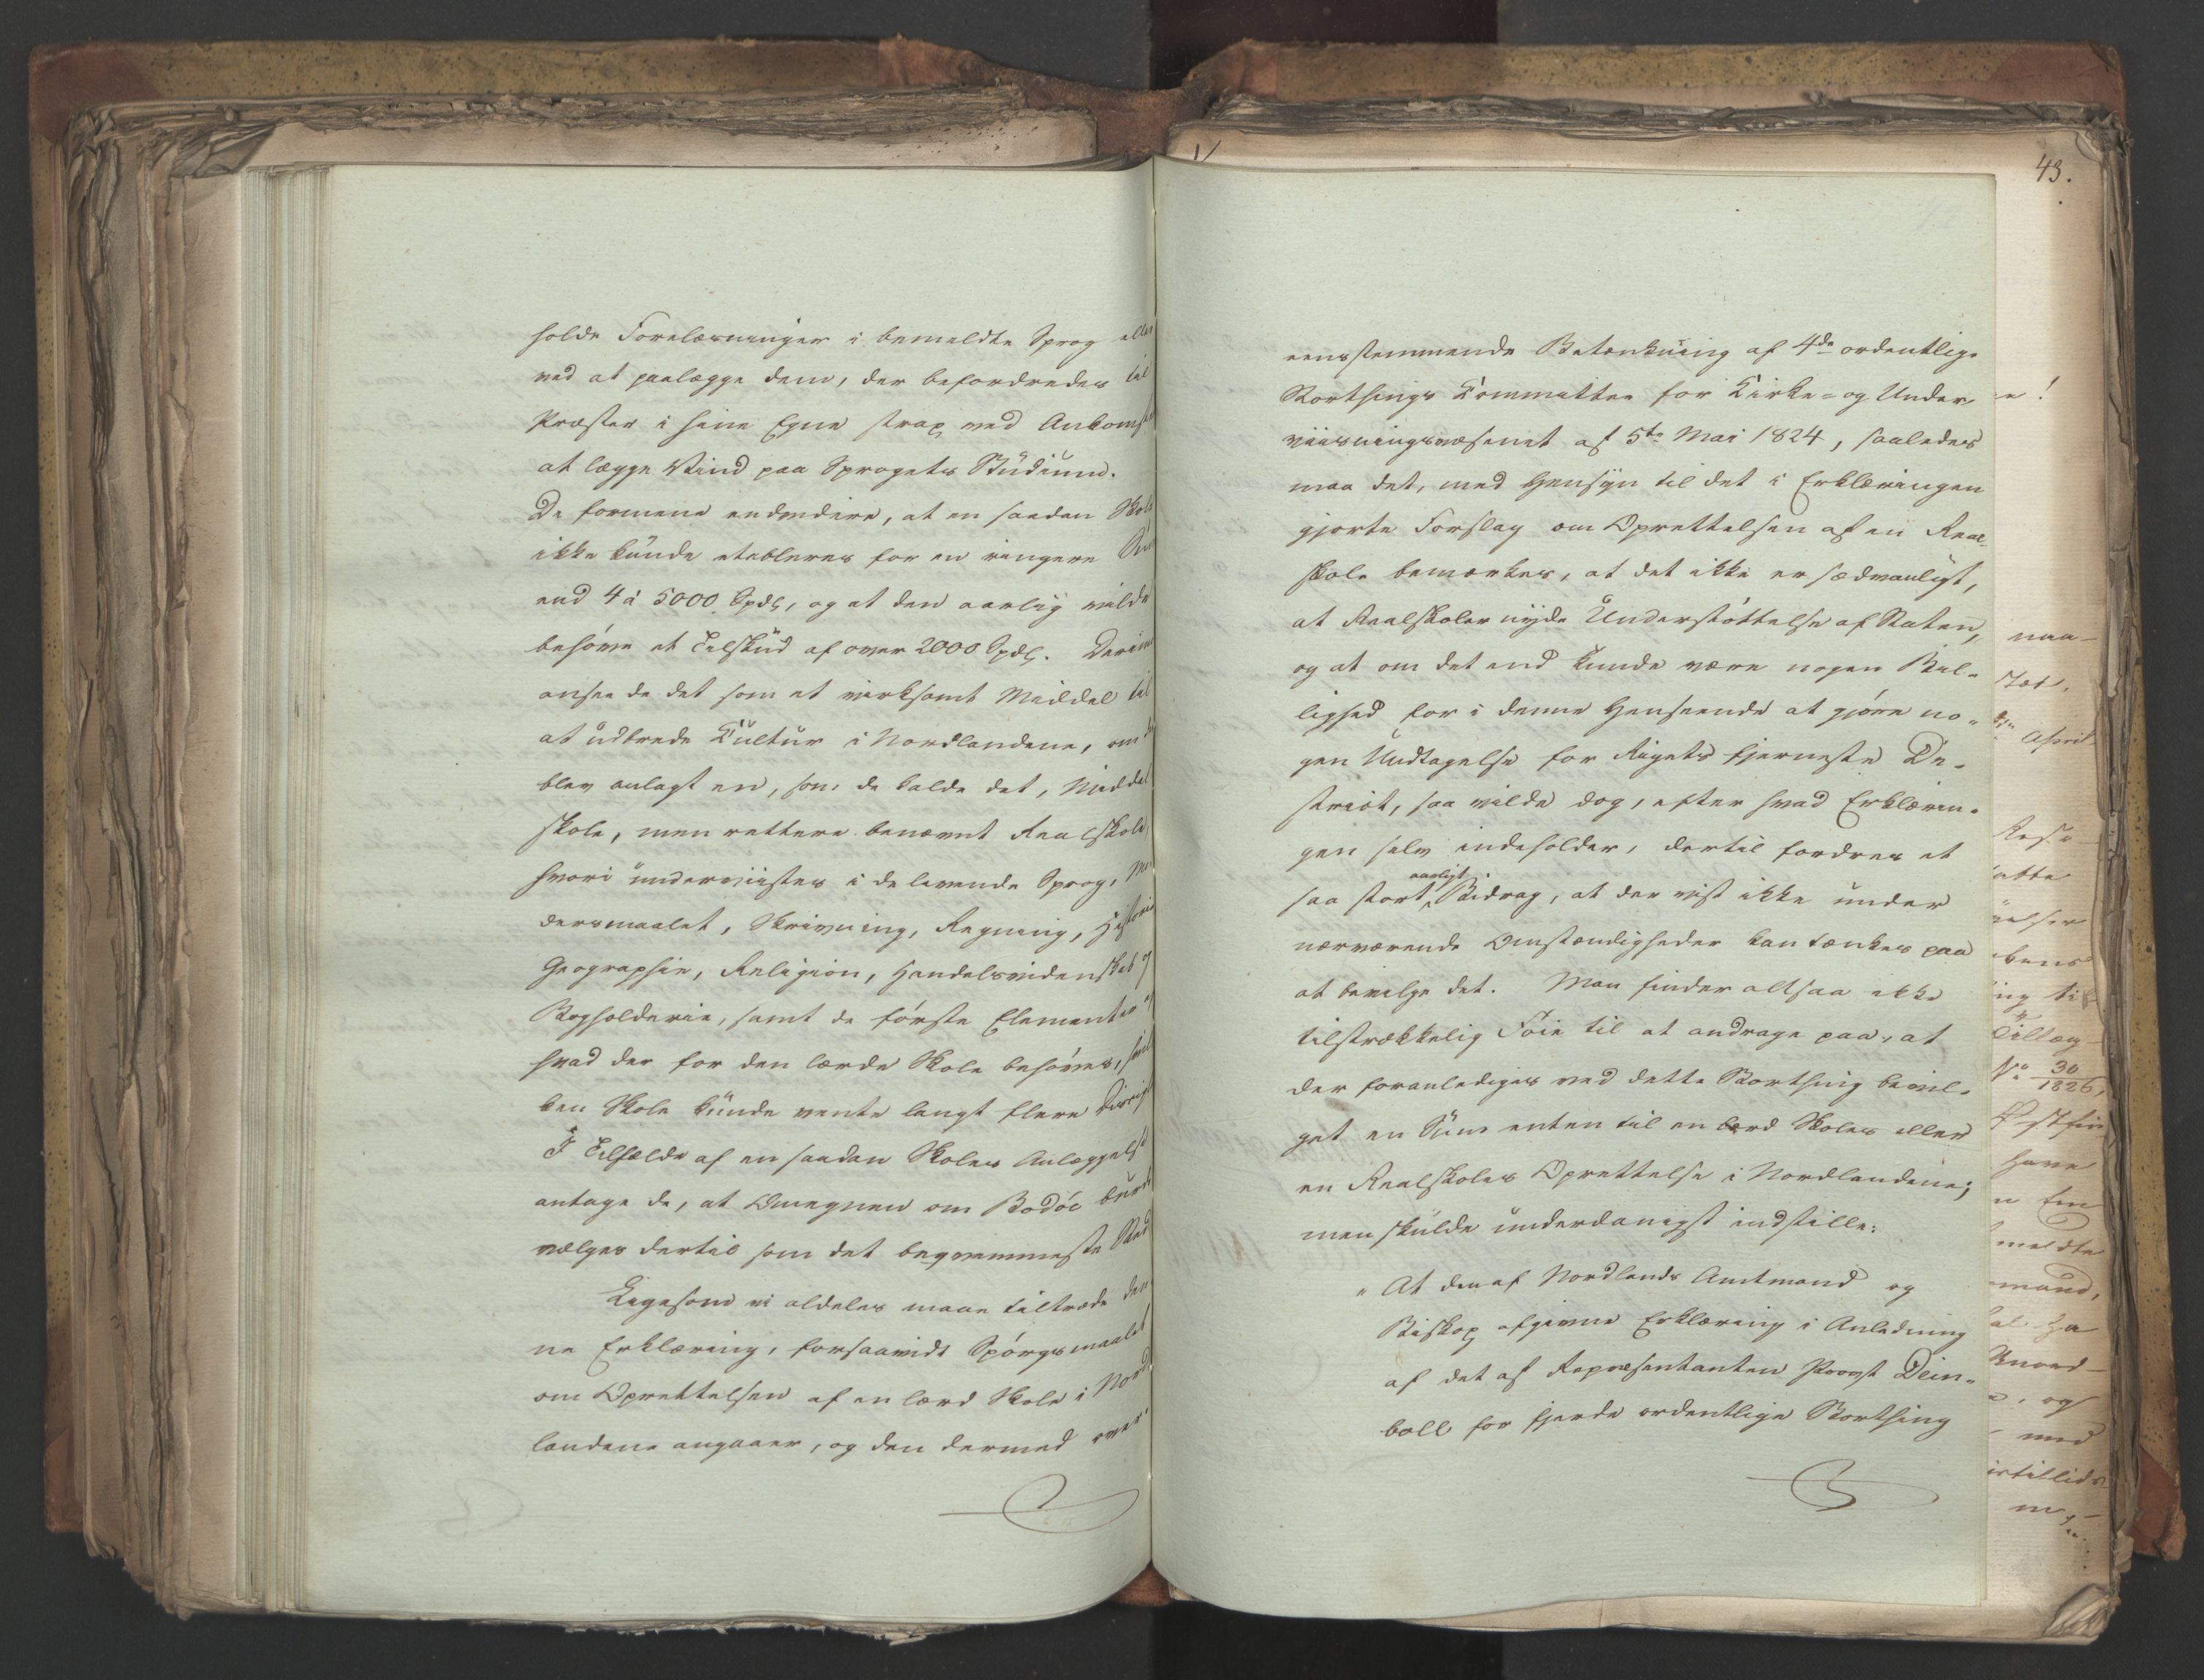 holde Forelæsninger i bemeldte Sprog eller
ved at paalægge dem, der befordredes til
Præster i hine Egne strax ved Ankomst
at lægge Vind paa Sprogets Studium.
De formene endvidere, at en saadan Skole
ikke kunde etableres for en ringere
end 4 à 5000 Spdlr, og at den aarlig vilde
behøve et Tilskud af over 2000 Spdlr. Derimod
ansee de det som et virksomt Middel til
at udbrede Kultur i Nordlandene, om der
blev anlagt en, som de kalde det, Middel
skole, men rettere benævnt Realskole,
hvori underviistes i de levende Sprog, Mo
dersmaalet, Skrivning, Regning, Historie
Geographie, Religion, Handelsvidenskab og
Bogholderie, samt de første Elementer af
hvad der for den lærde Skole behøves, hvil
ken Skole kunde vente langt flere Discipl
I Tilfælde af en saadan Skoles Anlæggelse
antage de, at Omegnen om Bodøe burde
vælges dertil som det beqvemmeste Sted
Ligesom vi aldeles maae tiltræde den
ne Erklæring, forsaavidt Spørgsmaalet
om Oprettelsen af en lærd Skole i Nord
landene angaaer, og den dermed over
43.
eensstemmende Betænkning af 4de ordentlige
Storthings Committee for Kirke- og Under
viisningsvæsenet af 5te Mai 1824, saaledes
maa det, med Hensyn til det i Erklæringen
gjorte Forslag om Oprettelsen af en Real-
skole bemærkes, at det ikke er sædvanligt,
at Realskoler nyde Understøttelse af Staten,
og at om det end kunde være nogen Bil-
lighed for i denne Henseende at gjøre no-
gen Undtagelse for Rigets fjerneste Di-
strict, saa vilde dog, efter hvad Erklærin-
gen selv indeholder, dertil fordres et
aarligt
saa stort Bidrag, at der vist ikke under
nærværende Omstændigheder kan tænkes paa
at bevilge det. Man finder altsaa ikke
tilstrækkelig Føie til at andrage paa, at
der foranlediges ved dette Storthing bevil-
get en Sum enten til en lærd Skoles eller
en Realskoles Oprettelse i Nordlandene;
men skulde underdanigst indstille:
"At den af Nordlands Amtmand og
Biskop afgivne Erklæring i Anledning
af det af Repræsentanten Provst Dein-
boll for fjerde ordentlige Storthing
April
No 30/1826,